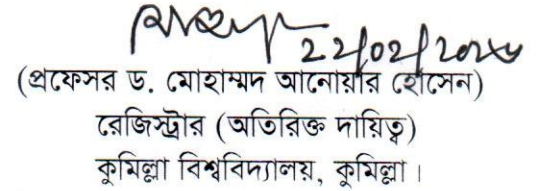 (প্রফেসর ড. মোহাম্মদ আনোয়ার হোসেন)
রেজিস্ট্রার (অতিরিক্ত দায়িত্ব)
কুমিল্লা বিশ্ববিদ্যালয়, কুমিল্লা।